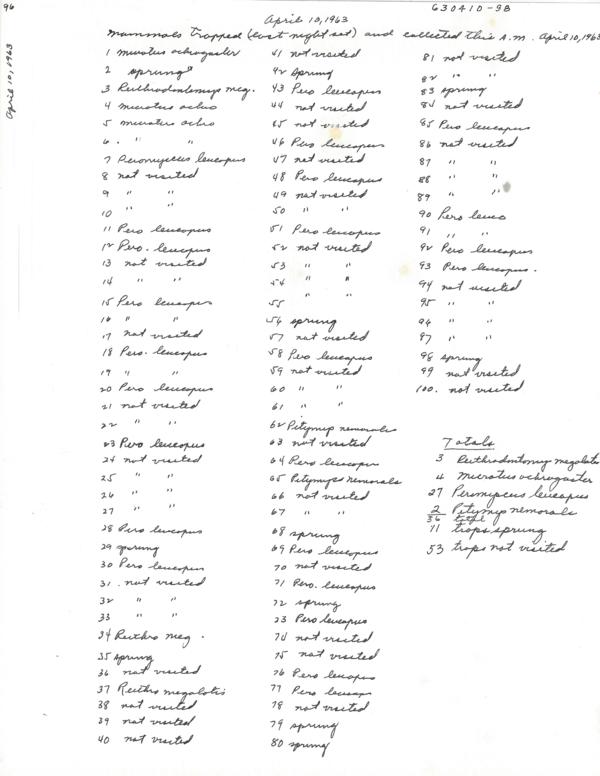 96
April 10, 1963
April 10, 1963
630410-9B
Mammals trapped (last night set) and collected this A.M. April 10, 1963
1 Microtus ochrogaster
2 sprung
3 Reithrodontomys meg.
4 microtus ochro
5 microtus ochro
6. " "
7 Peromyscus leucopus
8 not visited
9 " "
10 " "
11 Pero leucopus
12 Pero. leucopus
13 not visited
14 " "
15 Pero leucopus
16 " "
17 not visited
18 Pero. leucopus
19 " "
20 Pero leucopus
21 not visited
22 " "
23 Pero leucopus
24 not visited
25 " "
26 " "
27 " "
28 Pero leucopus
29 sprung
30 Pero leucopus
31. not visited
32 " "
33 " "
34 Reithro meg.
35 sprung
36 not visited
37 Reithro megalotis
38 not visited
39 not visited
40 not visited
41 not visited
42 sprung
43 Pero leucopus
44 not visited
45 not visited
46 Pero leucopus
47 not visited
48 Pero leucopus
49 not visited
50 " "
51 Pero leucopus
52 not visited
53 " "
54 " "
55 " "
56 sprung
57 not visited
58 Pero leucopus
59 not visited
60 " "
61 " "
62 Pitymys nemoralis
63 not visited
64 Pero leucopus
65 Pitymys nemoralis
66 not visited
67 " "
68 sprung
69 Pero leucopus
70 not visited
71 Pero. leucopus
72 sprung
73 Pero leucopus
74 not visited
75 not visited
76 Pero leucopus
77 Pero leucopus
78 not visited
79 sprung
80 sprung
81 not visited
82 " "
83 sprung
84 not visited
85 Pero leucopus
86 not visited
87 " "
88 " "
89 " "
90 Pero leuco
91 " "
92 Pero leucopus
93 Pero leucopus.
94 not visited
95 " "
96 " "
97 " "
98 sprung
99 not visited
100. not visited
Totals
3 Reithrodontomys megalotis
4 Microtus ochrogaster
27 Peromyscus leucopus
2 Pitymys nemoralis
36 total
11 traps sprung
53 traps not visited